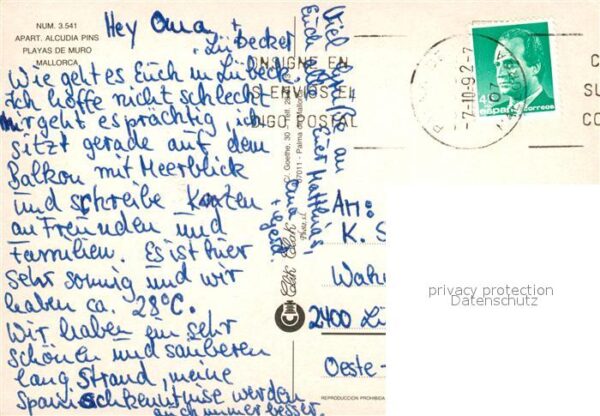 NUM. 3.541
APART. ALCUDIA PINS
PLAYAS DE MURO
MALLORCA
Hey Oma +
Lübecker
Wie geht es Euch in Lübeck,
Ich hoffe nicht schlecht
mir geht es prächtig, ich
sitzt gerade auf dem
Balkon mit Meerblick
und schreibe Karten
an Freunden und
Familien. Es ist hier
sehr sonnig und wir
haben ca. 28°C.
Wir haben ein sehr
schönen und sauberen
lang Strand, meine
Spanischkenntnise werden
auch immer besser.
Viel an
Euch
Euer Matthias,
Oma
+ Gerd.
C/. Goethe, 30 - Tel. 28
07011 - Palma de Mallorca
Clik Clak
Photo.s.l.
CONSIGNE EN
SUS ENVIOS EL
CODIGO POSTAL
-7-10-92-7
07
españa
correos
C
SU
CO
An:
K. S
2400 Lü
Oeste-
REPRODUCCION PROHIBIDA
privacy protection
Datenschutz